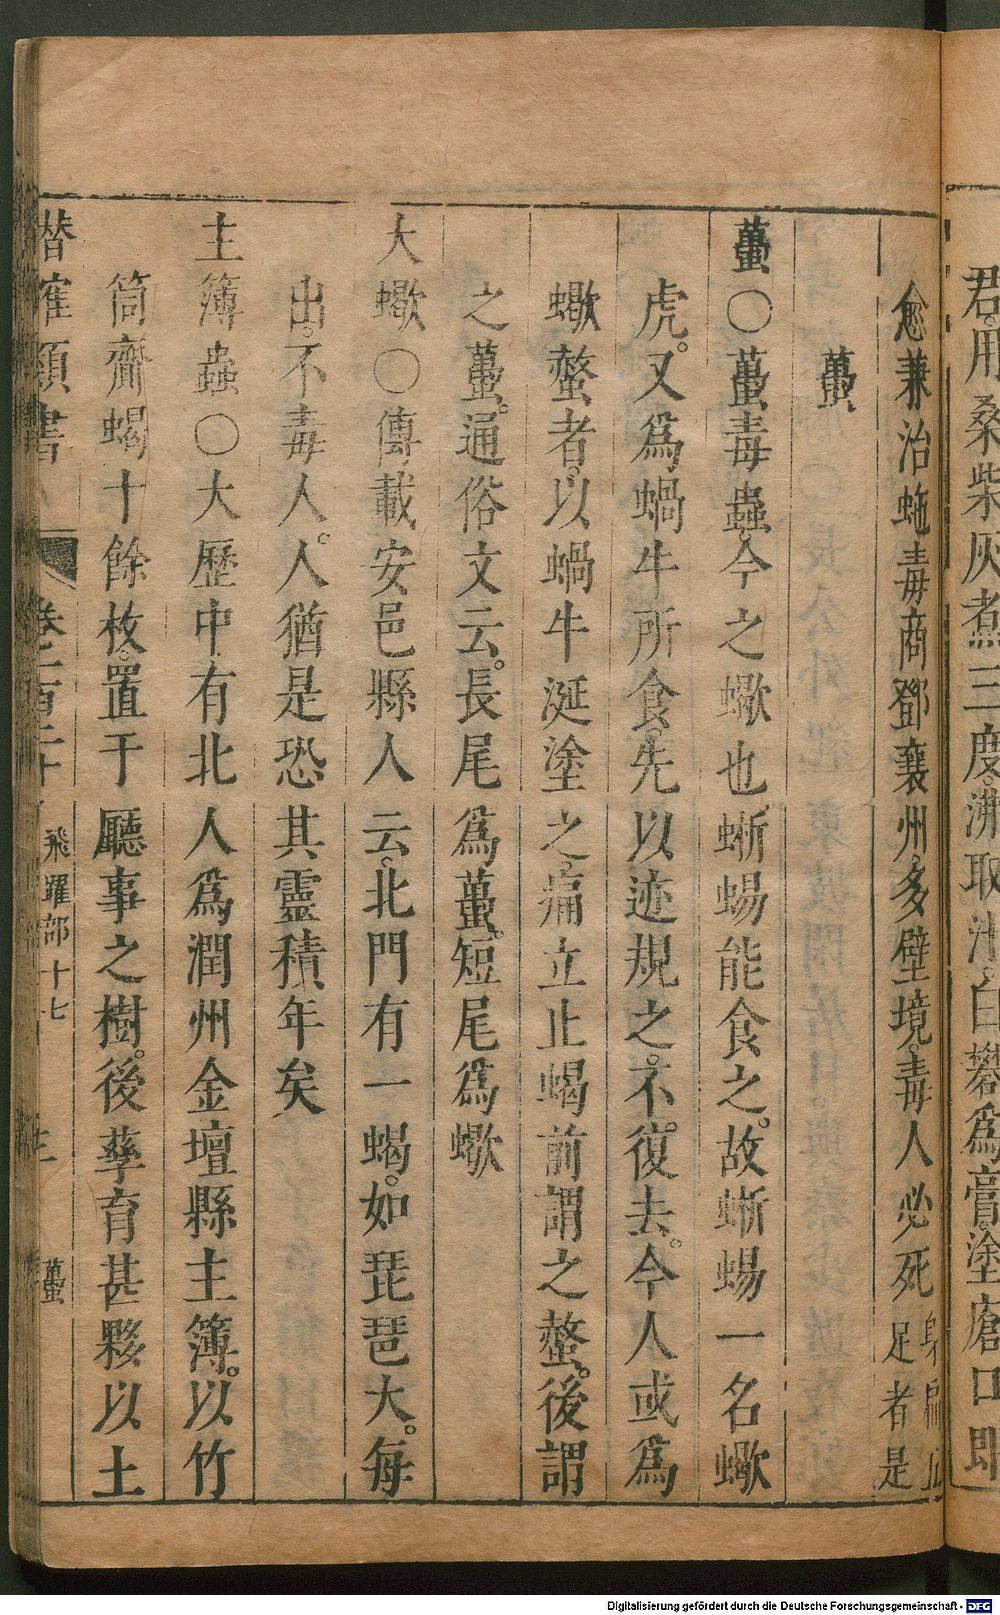 君。用桑柴灰煮三度。沸取汁。白礬爲膏。塗瘡口即
愈兼治蛇毒商鄧襄州。多壁境。毒人必死身扁五
足者是
蠆
蠆○蠆毒蟲。今之蠍也蜥蜴能食之。故蜥蜴一名蠍
虎。又爲蝸牛所食。先以迹規之。不復去。今人或爲
蠍螫者。以蝸牛涎塗之。痛立止蝎前謂之螫。後謂
之蠆。通俗文云。長尾爲蠆。短尾爲蠍
大蠍○傳載安邑縣人云。北門有一蝎。如琵琶大。每
出。不毒人。人猶是恐其靈積年矣
主簿蟲○大歷中有北人爲潤州金壇縣主簿。以竹
筒齎蝎十餘枚。置于廳事之樹。後孳育甚夥以土
潛確類書
卷之百二十
飛躍部十七
蠆
Digitalisierung gefördert durch die Deutsche Forschungsgemeinschaft - DFG